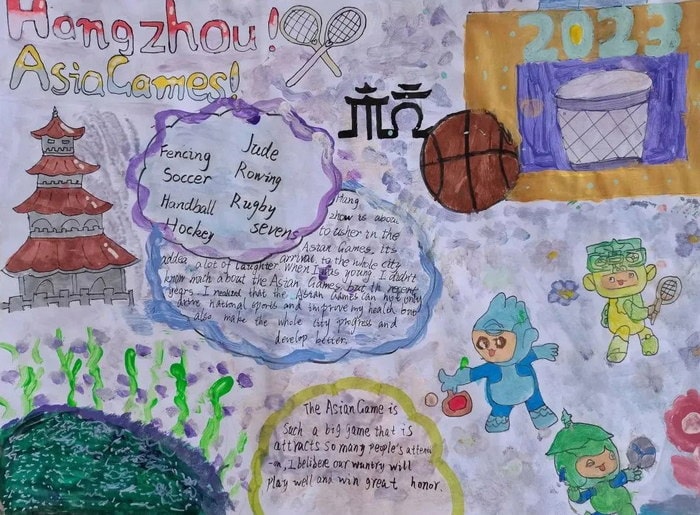 Hangzhou!
AsiaGames!
2023
杭
Fencing Jude
Soccer Rowing
Handball Rugby
Hockey sevens
Hang
zhow is about
to usher in the
Asian Games, its
arrival to the whole city
added a lot of laughter. When I was young, I didn't
know math about the Asian Games, but in recent
years. I realized that the Asian Games can not only
national sports and improve my health, but
also make the whole city progress and
develop better.
The Asian Game is
such a big game that is
attracts so many people's attenti
-on, I belibere our wuntry will
play well and win great honor.